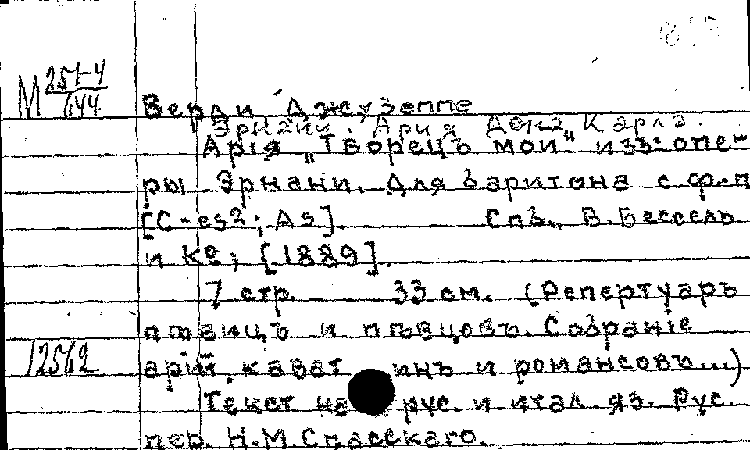 М 251-4/644
Верди Джузеппе
Эрнани. Ария Дона Карла.
Арія „Творецъ мой" изъ опе-
ры Эрнани. Для баритона с ф.-п
[C-es2; As]. Спб., В. Бессель
и Ко, [1889].
7 стр. 33 см. (Репертуаръ
пѣвицъ и пѣвцовъ. Собраніе
12562
арій, каватинъ и романсовъ...)
Текст на рус. и итал. яз. Рус.
пер. Н.М. Спасскаго.